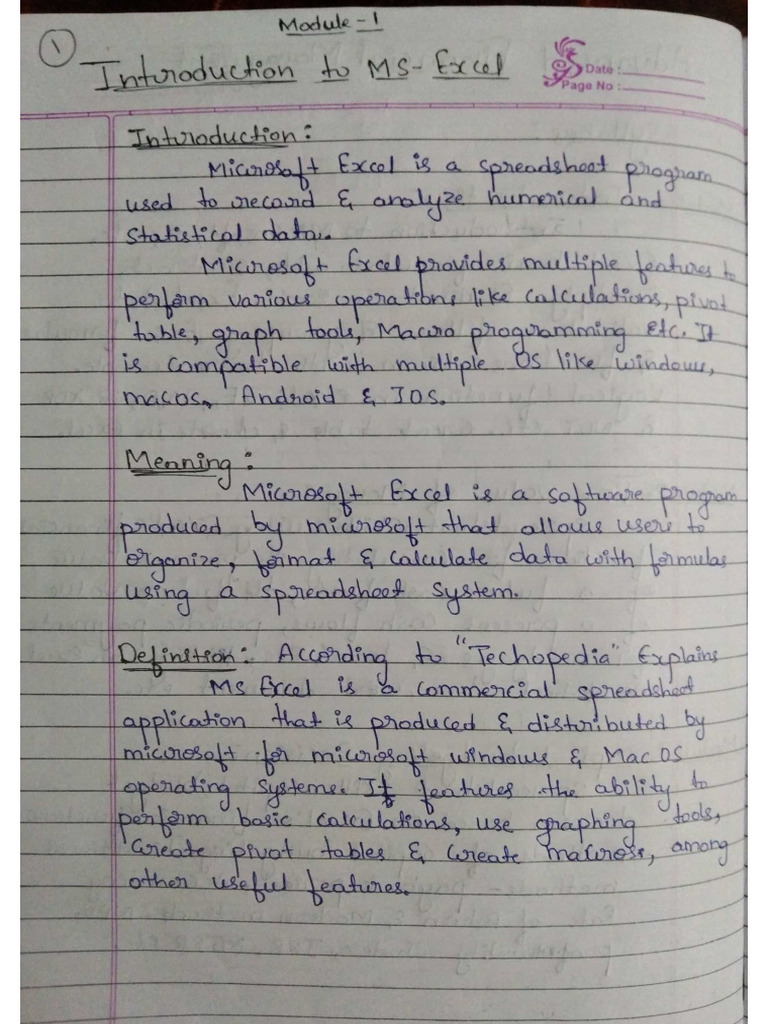 Module - 1
1
Introduction to MS- Excel
Date :
Page No :
Introduction :
Microsoft Excel is a spreadsheet program
used to record & analyze numerical and
statistical data.
Microsoft Excel provides multiple features to
perform various operations like calculations, pivot
table, graph tools, Macro programming etc. It
is compatible with multiple OS like windows,
macOS, Android & IOS.
Meaning :
Microsoft Excel is a software program
produced by microsoft that allows users to
organize, format & calculate data with formulas
using a spreadsheet system.
Definition : According to "Techopedia" Explains
Ms Excel is a commercial spreadsheet
application that is produced & distributed by
microsoft for microsoft windows & Mac OS
operating systems. It features the ability to
perform basic calculations, use graphing tools,
create pivot tables & create macros, among
other useful features.